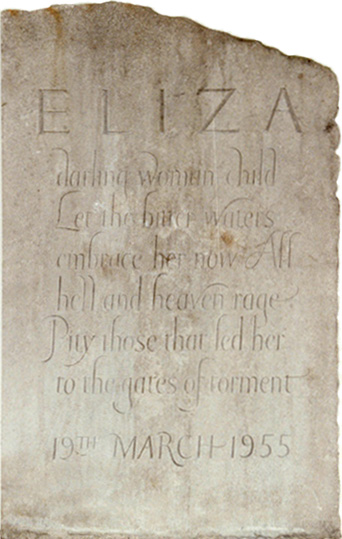 ELIZA
darling woman child
Let the bitter waters
embrace her now All
hell and heaven rage
Pity those that led her
to the gates of torment
19TH MARCH 1955